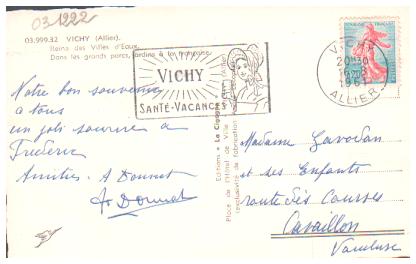 03.1222
03.999.32 VICHY (Allier).
Reine des Villes d'Eaux.
Dans les grands parcs, jardins à la française.
VICHY
SANTÉ-VACANCES
VICHY
20H30
1961
ALLIER
Notre bon souvenir
a tous
un joli sourire a
Frederic
Amities - A Donnat
A Donnat
Editions "La Cigogne"
Place de l'Hôtel de Ville
exclusivité de fabrication
Madame Gavodan
et ses Enfants
route des Courses
Cavaillon
Vaucluse